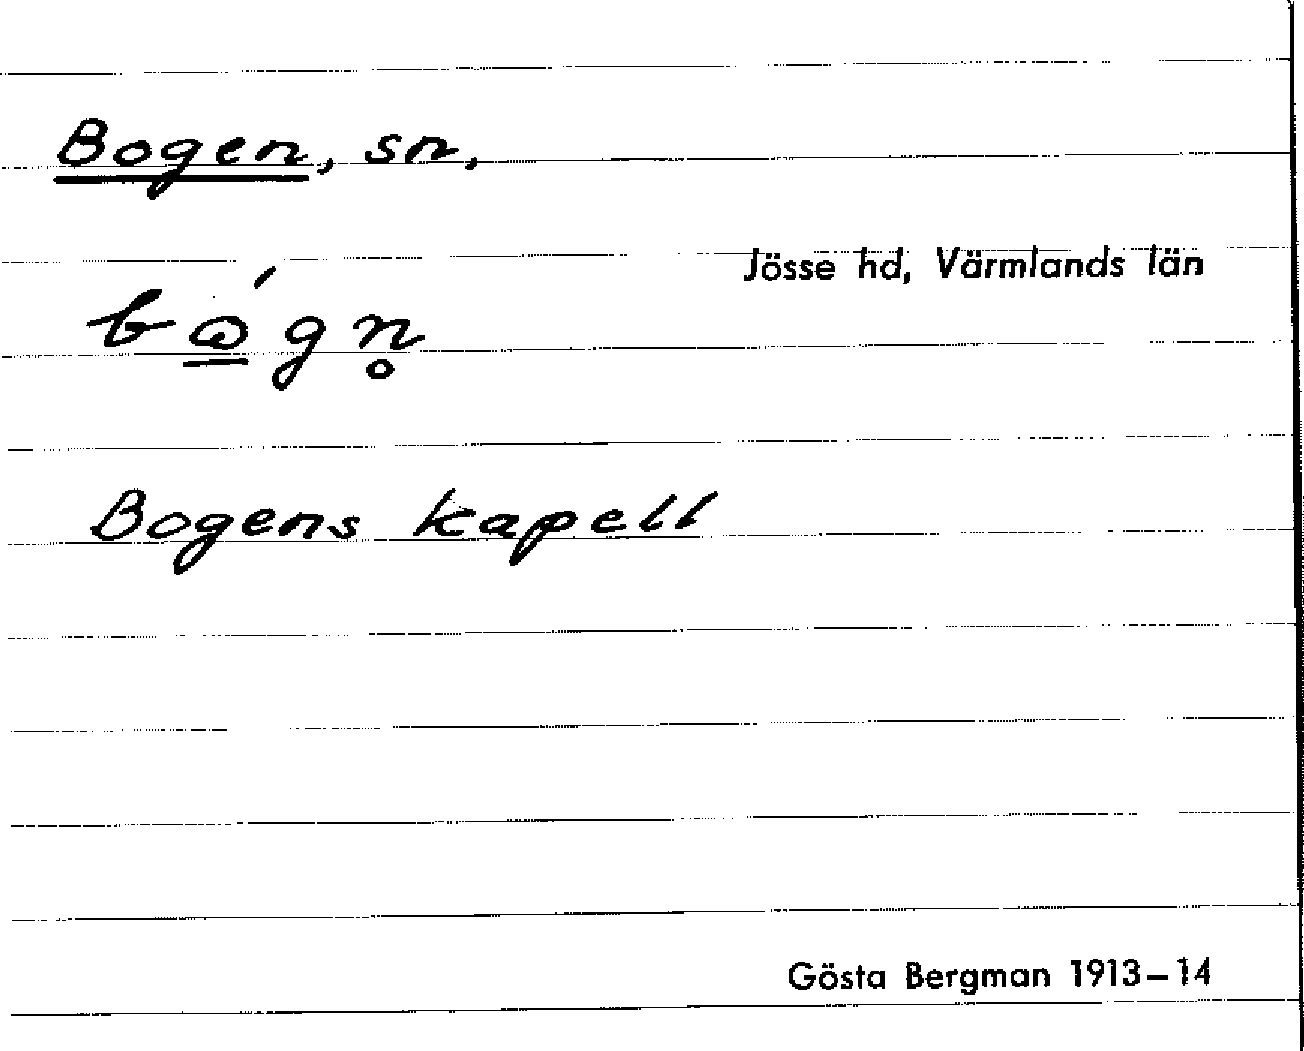 Bogen, sn,
Jösse hd, Värmlands län
bώ̲gn̥
Bogens kapell
Gösta Bergman 1913–14